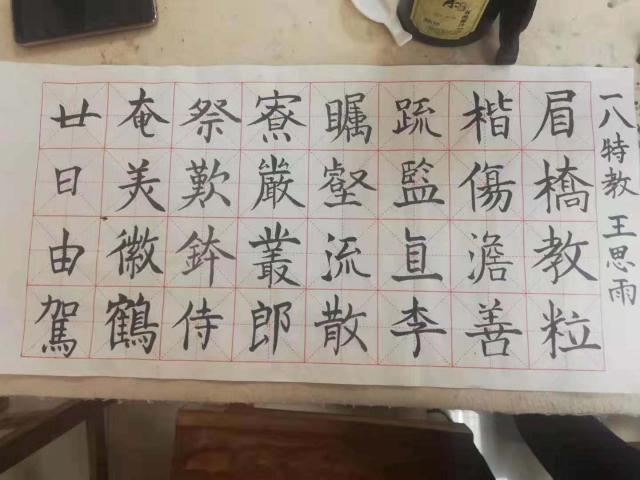 一八特教 王思雨
眉橋教粒
楷傷澹善
疏監直李
矚壑流散
寮嚴叢郎
祭歎鉢侍
奄美徽鶴
廿日由駕